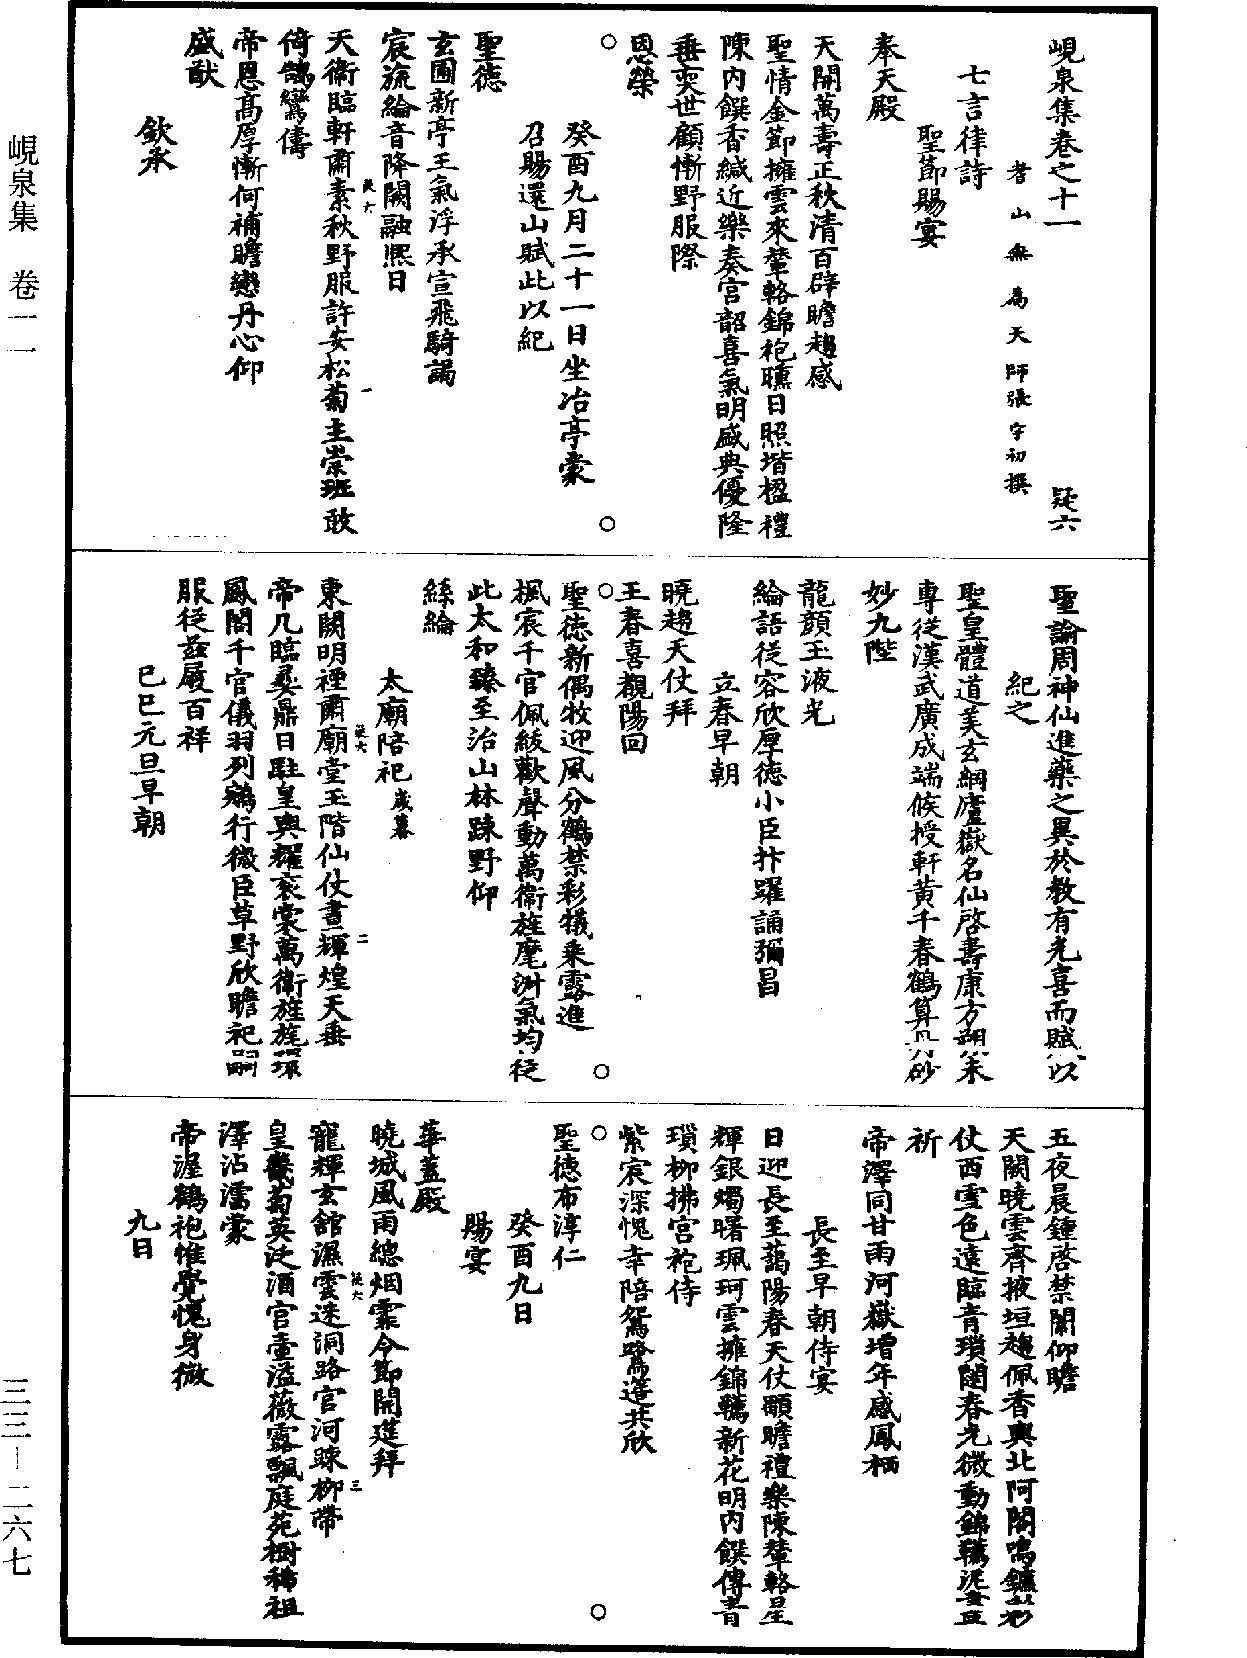 峴泉集卷之十一
疑六
耆山無為天師張宇初撰
七言律詩
聖節賜宴
奉天殿
天開萬壽正秋清百辟瞻趨感
聖情金節擁雲來輦輅錦袍曛日照堦楹禮
陳內饌香緘近樂奏宮韶喜氣明盛典優隆
垂奕世顧慚野服際
恩榮
癸酉九月二十一日坐冶亭蒙
召賜還山賦此以紀
聖德
玄圃新亭王氣浮承宣飛騎謁
宸旒綸音降闕融熙日
疑六
一
天衞臨軒肅素秋野服許安松菊主崇班敢
倚鵠鸞儔
帝恩高厚慚何補瞻戀丹心仰
盛猷
欽承
聖諭周神仙進藥之異於教有光喜而賦以
紀之
聖皇體道美玄綱廬嶽名仙啓壽康方朔未
專從漢武廣成端候授軒黃千春鶴算丹砂
妙九陛
龍顏玉液光
綸語從容欣厚德小臣抃躍誦彌昌
立春早朝
曉趨天仗拜
王春喜覩陽回
聖德新偶牧迎風分鶴禁彩犧乘露進
楓宸千官佩紱歡聲動萬衞旌麾淑氣均從
此太和臻至治山林踈野仰
絲綸
太廟陪祀歲暮
疑六
二
東闕明禋肅廟堂玉階仙仗晝輝煌天垂
帝几臨彝鼎日駐皇輿耀衮裳萬衞旌旄環
鳳閣千官儀羽列鵷行微臣草野欣瞻祀嗣
服從茲嚴百祥
巳巳元旦早朝
五夜晨鍾啓禁闈仰瞻
天闕曉雲齊掖垣趨佩香輿北阿閣鳴鑣彩
仗西雪色遠臨青瑣闥春光微動錦韉泥
祈
帝澤同甘雨河嶽增年感鳳栖
長至早朝侍宴
日迎長至藹陽春天仗顒瞻禮樂陳輦輅星
輝銀燭曙珮珂雲擁錦韉新花明內饌傳青
瑣柳拂宮袍侍
紫宸深愧幸陪鴛鷺筵共欣
聖德布淳仁
癸酉九日
賜宴
華蓋殿
曉城風雨總烟霏令節開筵拜
疑六
三
寵輝玄舘濕雲迷洞路官河踈柳帶
皇畿菊英泛酒宮壺溢薇露飄庭苑樹稀祖
澤沾濡蒙
帝渥鶴袍惟覺愧身微
九日
峴泉集　卷一一
三三—二六七